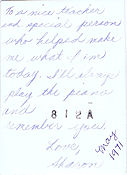 To a nice teacher
and special person
who helped make
me what I'm
today. I'll always
play the piano
and
remember you.
812A
Love,
Sharon
May
1971